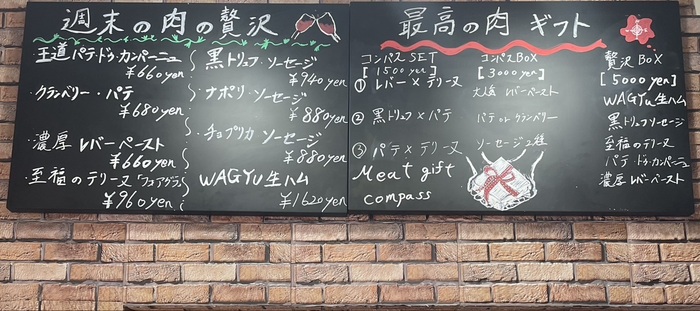 週末の肉の贅沢
・王道パテ・ドゥ・カンパーニュ
¥660yen
・クランベリー・パテ
¥680yen
・濃厚レバーペースト
¥660yen
・至福のテリーヌ フォアグラ
¥960yen
黒トリュフ・ソーセージ
¥940yen
ナポリ・ソーセージ
¥880yen
・チョプリカ ソーセージ
¥880yen
WAGYU生ハム
¥1620yen
最高の肉 ギフト
コンパス SET
[1500yen]
① レバー×テリーヌ
② 黒トリュフ×パテ
③ パテ×テリーヌ
Meat gift
compass
コンパスBOX
[3000yen]
大人気 レバーペースト
パテ or クランベリー
ソーセージ2種
贅沢 BOX
[5000yen]
WAGYU生ハム
黒トリュフソーセージ
至福のテリーヌ
パテ・ドゥ・カンパーニュ
濃厚レバーペースト